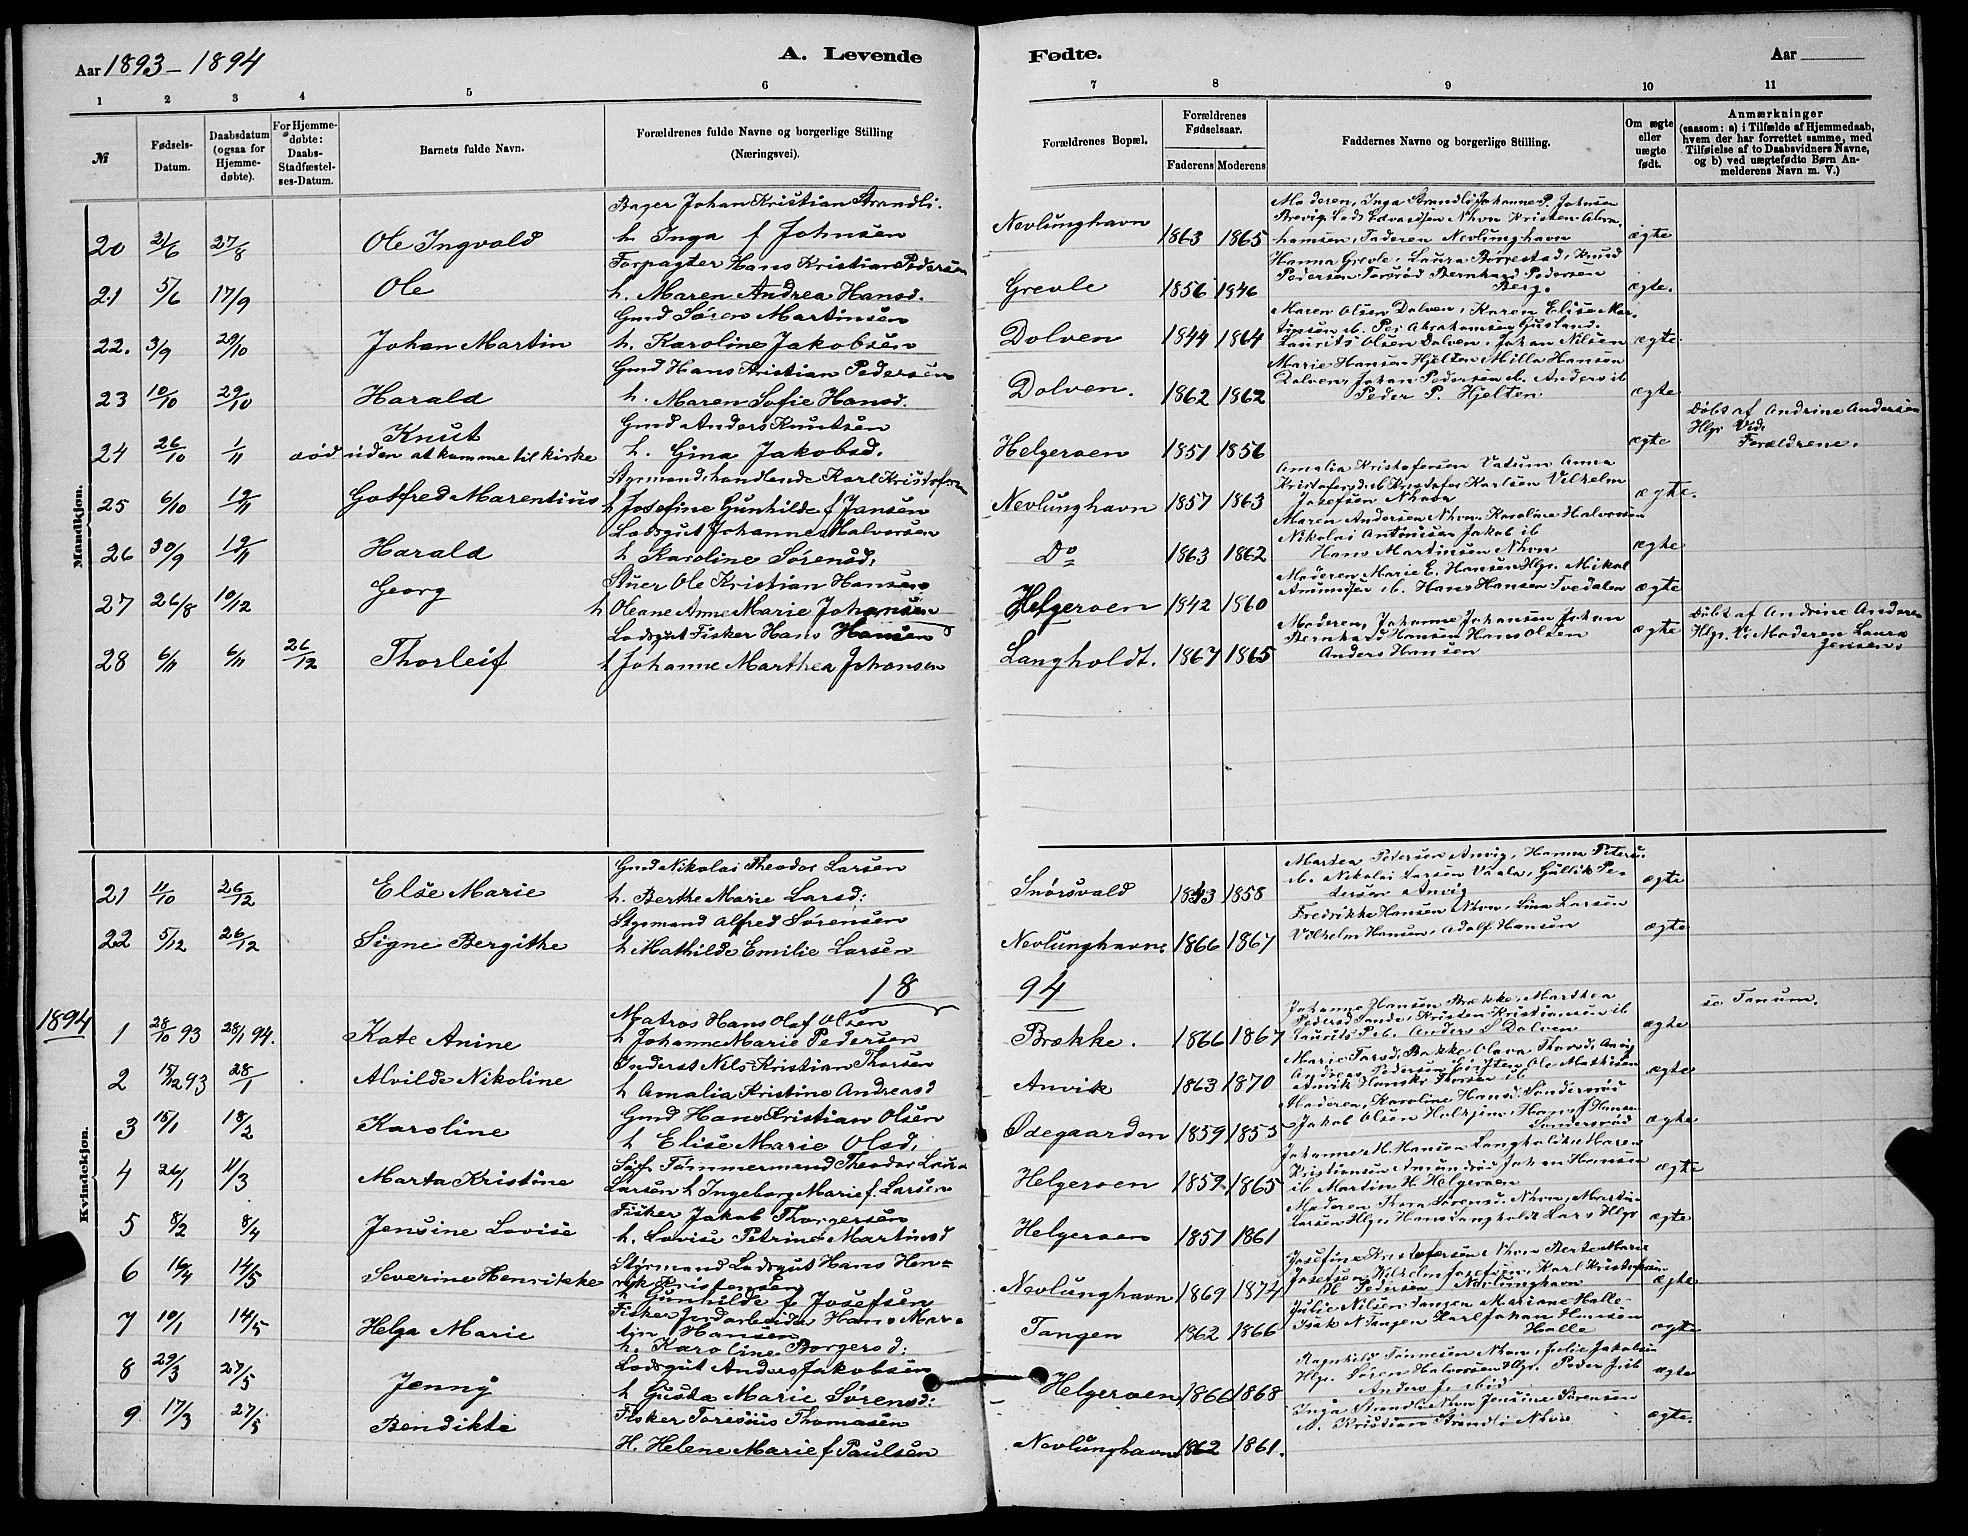 Aar 1893-1894
A. Levende
Fødte.
Aar
1 2 3 4 5 6 7 8 9 10 11
№
Fødsels-Datum.
Daabsdatum (ogsaa for Hjemme-døbte).
For Hjemme-døbte: Daabs-Stadfæstel-ses-Datum.
Barnets fulde Navn.
Forældrenes fulde Navne og borgerlige Stilling
(Næringsvei).
Forældrenes Bopæl.
Forældrenes Fødselsaar.
Faderens Moderens
Faddernes Navne og borgerlige Stilling.
Om ægte eller uægte født.
Anmærkninger
(saasom: a) i Tilfælde af Hjemmedaab,
hvem der har forrettet samme, med
Tilføielse af to Daabsvidners Navne,
og b) ved uægtefødte Børn An-
melderens Navn m. V.)
Mandkjøn.
Bager Johan Kristian Strandli.
20 21/6 27/8 Ole Ingvald h. Inga f Johnsen Nevlunghavn 1863 1865 ægte
Moderen, Inga Strandli, Johanne P. Johnsen
hamsen, Faderen Nevlunghavn
Forpagter Hans Kristian Pedersen
21 5/6 17/9 Ole h. Maren Andrea Hansd. Grevle 1856 1846 ægte.
Hanna Grevle, Laura Brørestad, Knud
Pedersen Torsrød Bernhard Pedersen
Berg.
Gmd Søren Martinsen
22. 3/9 29/10 Johan Martin h. Karoline Jakobsen Dolven 1844 1864 ægte
Maren Olsen Dolven, Karen Elise Mar-
tinsen ib. Per Abrahamsen Gusland.
Laurits Olsen Dolven, Johan Nilsen
Gmd Hans Kristian Pedersen
23 10/10 29/10 Harald h. Maren Sofie Hansd. Dolven. 1862 1862 ægte
Marie Hansen Hjelten Milla Hansen
Dolven, Johan Pedersen ib. Anders ib
Peder P. Hjelten
Gmd Anders Knutsen
24 26/10 1/11 Knut h. Gina Jakobsd. Helgeroen 1851 1856 ægte
død uden at komme til kirke
Døbt af Andrine Andersen
Hlgr. Vid:
Forældrene.
Styrmand, handlende Karl Kristofersen
25 6/10 19/11 Gotfred Marentius h Josefine Gunhilde f Jansen Nevlunghavn 1857 1863 ægte.
Amalia Kristofersen Vatum Anna
Kristofersd ib Kristofer Karlsen Vilhelm
Josefsen Nhavn
Lodsgut Johannes Halvorsen
26 30/9 19/11 Harald h Karoline Sørensd. Do 1863 1862 ægte
Maren Andersen Nhvn, Karoline Halvorsen
Nikolai Antonisen Jakob ib
Hans Martinsen Nhvn
Stuer Ole Kristian Hansen
27 26/8 10/12 Georg h Oleane Anne Marie Johansen Helgeroen 1842 1860 ægte
Moderen Marie E. Hansen Hlgr. Mikal
Amundsen ib. Hans Hansen Tvedalen
Lodsgut Fisker Hans Hansen
28 6/11 6/11 26/12 Thorleif h Johanne Marthea Johansen Langholdt. 1867 1865 ægte
Moderen, Johanne Johansen Johan
Bernhard Hansen Hans Olsen
Anders Hansen
Døbt af Andrine Anders
Hlgr. V: Moderen Laura
Jensen.
Kvindekjøn.
Gmd Nikolai Theodor Larsen
21 11/10 26/12 Else Marie h. Berthe Marie Larsd: Snørsvald 1843 1858 ægte
Martea Pedersen Anvig, Hanna Peters.
ib. Nikolai Larsen Vaala, Gullik Pe-
dersen Anvig
Styrmand Alfred Sørensen
22 5/12 26/12 Signe Bergithe h Mathilde Emilie Larsen Nevlunghavn 1866 1867 ægte
Fredrikke Hansen Nhvn, Lina Larsen
Vilhelm Hansen, Adolf Hansen
18 94
1894
Matros Hans Olaf Olsen
1 28/10 93 28/1 94. Kate Anine h Johanne Marie Pedersen Brække. 1866 1867 ægte
Johanne Hansen Brække, Marthea
Pedersd Sande, Kristen Kristiansen ib
Laurits P ib. Anders S Dolven
se Tanum.
Inderst Nils Kristian Thorsen
2 15/12 93 28/1 Alvilde Nikoline h Amalia Kristine Andreasd Anvik 1863 1870 ægte
Gmd Hans Kristian Olsen
3 15/1 18/2 Karoline h Elise Marie Olsd. Ødegaarden 1859 1855 ægte
Moderen, Karoline Hansd. Søndersrød
Søndersrød
Søf Tømmermand Theodor Laura
4 26/1 11/3 Marta Kristine Larsen h Ingeborg Marie f. Larsen Helgeroen 1859 1865 ægte
Johanne M. Hansen Langholdt, Maren
Kristiansen Amundrød Johan Hansen
ib Martin H. Helgeroen
Fisker Jakob Thorgersen
5 8/2 8/4 Jensine Lovise h. Lovise Petrine Martinsd Helgeroen 1851 1861 ægte
Moderen Thora Sørensd. Nhvn, Martin
Larsen Hlgr, Hans Langholdt Lars Hlgr
Styrmand Lodsgut Hans Hen-
6 16/4 14/5 Severine Henrikke rik Kristensen Nevlunghavn 1869 1874 ægte
h Gunhilde f Josefsen
Josefine Kristofersen Nhvn Berte Marie
Josefsen, Vilhelm Josefsen, Karl Kristofersen
Pedersen Nevlunghavn
Fisker Jordarbeider Hans Mar-
7 10/1 14/5 Helga Marie tin Hansen Tangen 1862 1866 ægte
h. Karoline Borgersd:
Julie Nilsen Tangen Mariane Halle
Isak N Tangen Karl Johan Hansen
Halle
Lodsgut Anders Jakobsen
8 29/3 27/5 Jenny h Gusta Marie Sørensd: Helgeroen 1866 1868 ægte
Ragnhild Tønnesen Nhvn, Julie Jakobsen
Hlgr. Søren Halvorsen Hlgr. Peder J ib
Fisker Toresius Thomasen
9 17/3 27/5 Bendikte H. Helene Marie f Paulsen Nevlunghavn 1862 1861. ægte.
Inga Strandli Nhvn Jensine Sørensen
Kristian Strandli Nhvn